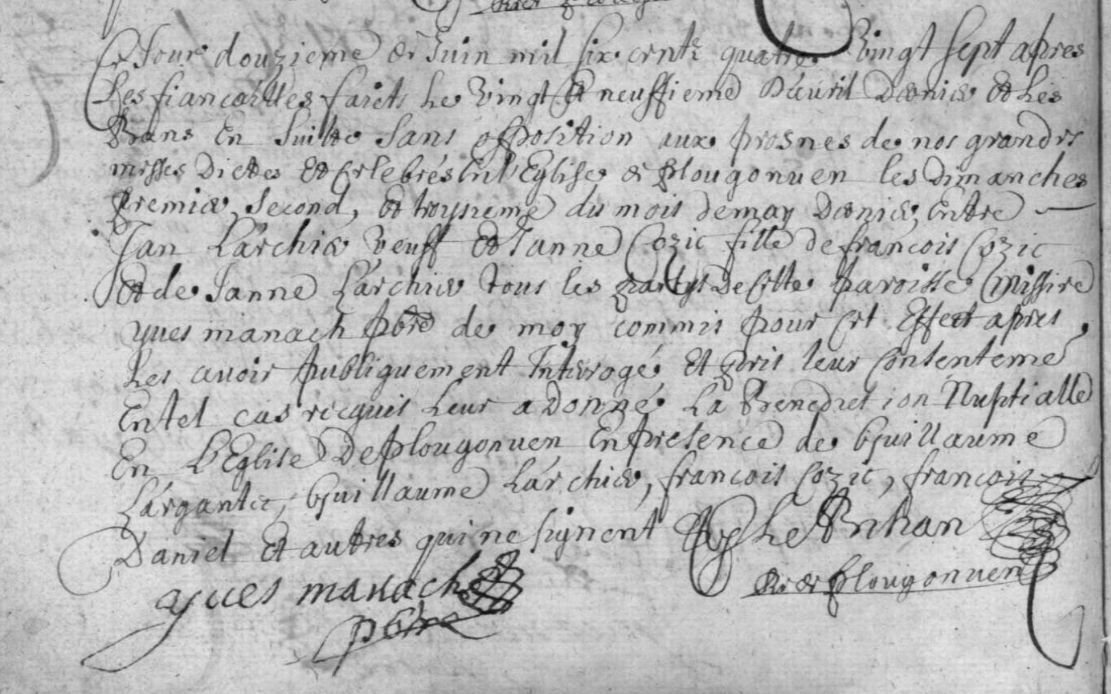 Ce Jour douzieme de Juin mil six cents quatre vingt sept apres
les fiancailles faicts le vingt et neuffieme D'auril Dernier et les
Bans En suitte sans opposition aux prosnes de nos grandes
messes Dictes et celebrés en l'Eglise de Plougonuen les dimanches
premier, second, et troysieme du mois de may Dernier, Entre
Jan Larchier veuff et Janne Cozic fille de francois Cozic
et de Janne Larchier tous les partys De cette paroisse Missire
yues manach pbre de moy commis pour cet Effect apres
les auoir publiquement Interrogé et pris leur consenteme
En tel cas recquis leur a Donné La Benediction Nuptialle
En L'Eglise De Plougonuen En presence de Guillaume
Largantez, Guillaume Larchier, francois Cozic, francois
Daniel et autres qui ne signent le Bihan
yues manach Rr de Plougonuen
pbre